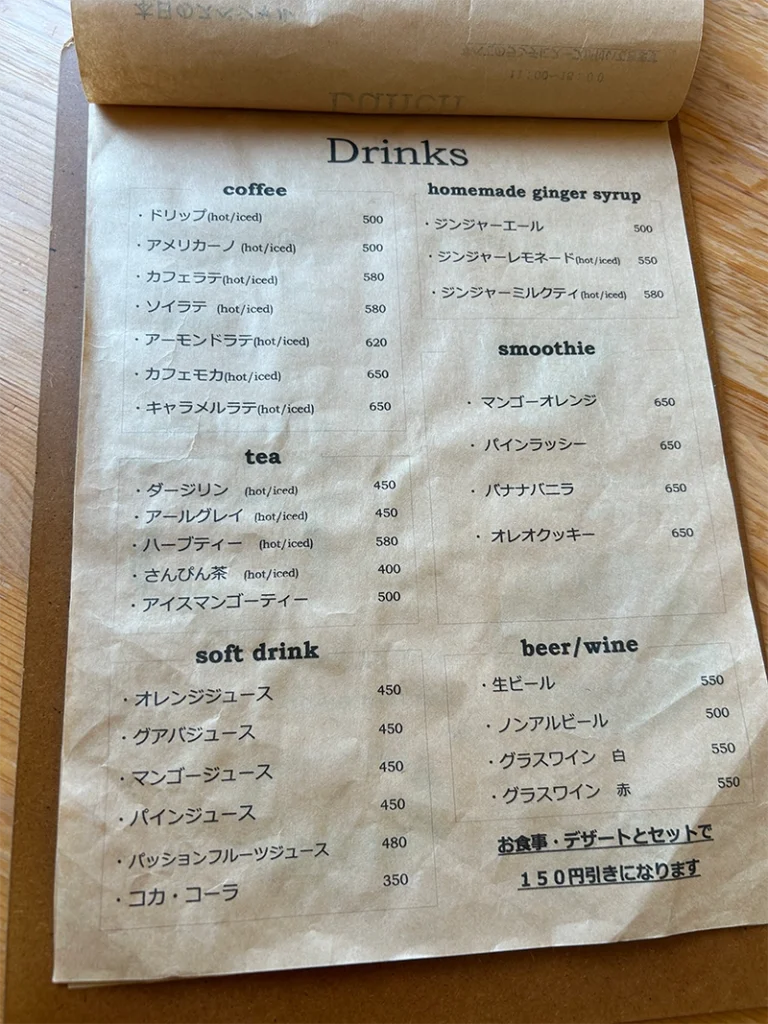 11:00~15:00
Lunch
Drinks
coffee
・ドリップ(hot/iced) 500
・アメリカーノ (hot/iced) 500
・カフェラテ(hot/iced) 580
・ソイラテ (hot/iced) 580
・アーモンドラテ(hot/iced) 620
・カフェモカ(hot/iced) 650
・キャラメルラテ(hot/iced) 650
tea
・ダージリン (hot/iced) 450
・アールグレイ (hot/iced) 450
・ハーブティー (hot/iced) 580
・さんぴん茶 (hot/iced) 400
・アイスマンゴーティー 500
soft drink
・オレンジジュース 450
・グアバジュース 450
・マンゴージュース 450
・パインジュース 450
・パッションフルーツジュース 480
・コカ・コーラ 350
homemade ginger syrup
・ジンジャーエール 500
・ジンジャーレモネード(hot/iced) 550
・ジンジャーミルクティ(hot/iced) 580
smoothie
・マンゴーオレンジ 650
・パインラッシー 650
・バナナバニラ 650
・オレオクッキー 650
beer/wine
・生ビール 550
・ノンアルビール 500
・グラスワイン 白 550
・グラスワイン 赤 550
お食事・デザートとセットで
１５０円引きになります